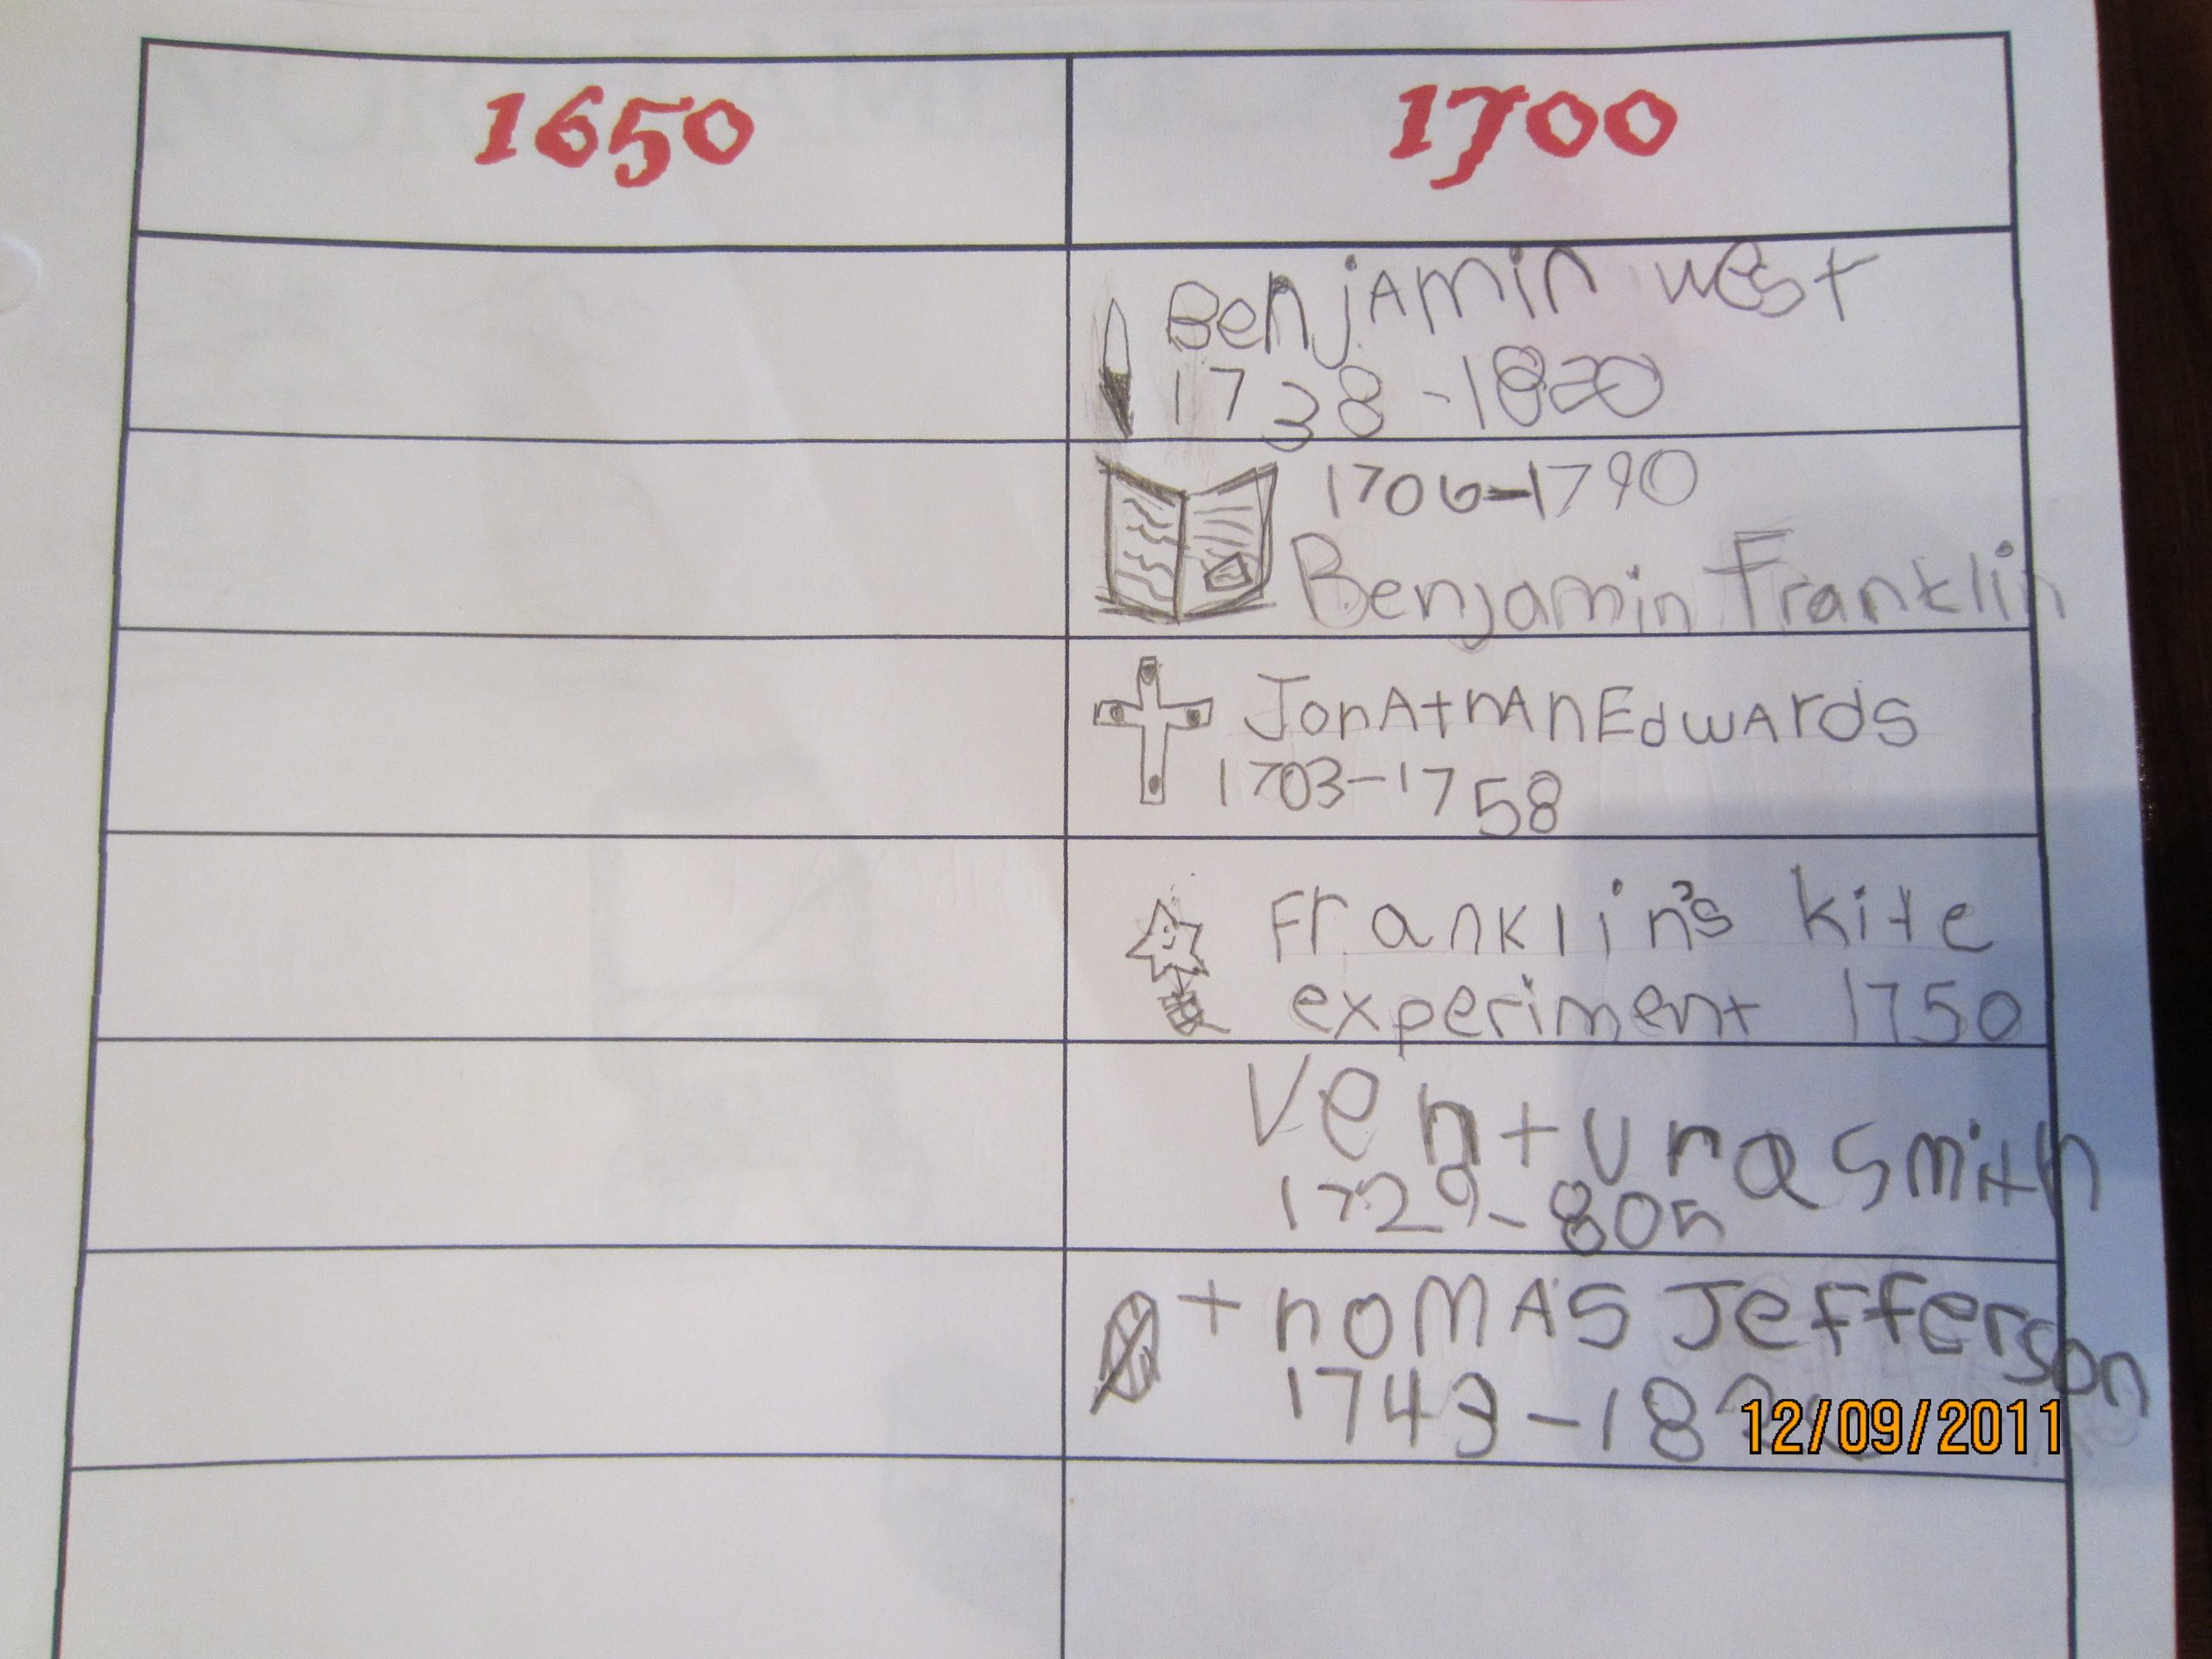 1650
1700
Benjamin west
1738-1820
1706-1790
Benjamin Franklin
Jonathan Edwards
1703-1758
Franklin's kite
experiment 1750
Ventura Smith
1729-805
thomas Jefferson
1743-18
12/09/2011